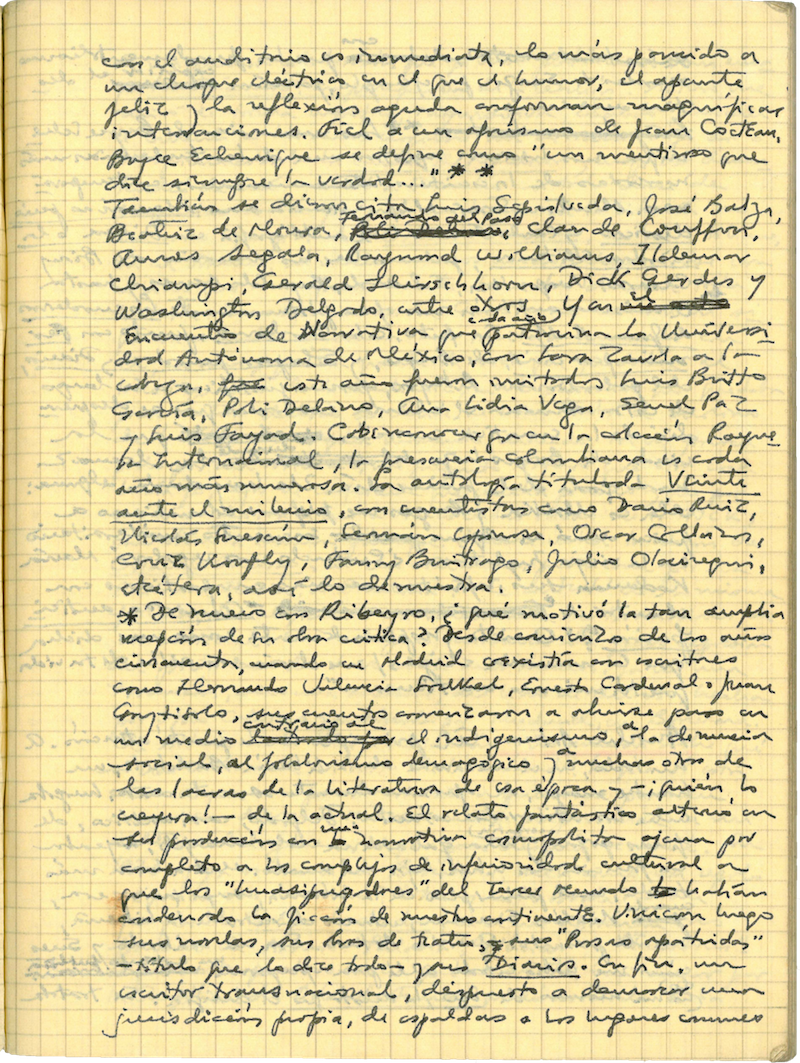 con el auditorio es inmediata, lo más parecido a
un choque eléctrico en el que el humor, el apunte
feliz y la reflexión aguda conforman magníficas
intervenciones. Fiel a un aforismo de Jean Cocteau,
Bryce Echenique se define como "un mentiroso que
dice siempre la verdad..." * *
También se dieron cita Luis Sepúlveda, José Balza,
Beatriz de Moura, Fernando del Paso, Claude Couffon,
Amos Segala, Raymond Williams,
Chiampi, Gerald Hirschhorn, Dick Gerdes y
Washington Delgado, entre otros. Y en el
Encuentro de Narrativa que cada año patrocina la Universi-
dad Autónoma de México, con Lara Zavala a la
cabeza, este año fueron invitados Luis Britto
García, Poli Délano, Ana Lidia Vega, Senel Paz
y Luis Fayad. Cabe reconocer que en la colección
Internacional, la presencia colombiana es cada
año más numerosa. La antología titulada Veinte
ante el milenio, con cuentistas como Darío Ruiz,
Nicolás Suescún, Germán Espinosa, Oscar Collazos,
Cruz Kronfly, Fanny Buitrago, Julio Olaciregui,
etcétera, así lo demuestra.
* De nuevo con Ribeyro, ¿qué motivó la tan amplia
recepción de su obra crítica? Desde comienzos de los años
cincuenta, cuando en Madrid coexistía con escritores
como Hernando Valencia Goelkel, Ernesto Cardenal o Juan
Goytisolo, sus cuentos comenzaron a abrirse paso en
un medio contrario al el indigenismo, a la denuncia
social, al folclorismo demagógico y a muchas otras de
las lacras de la literatura de esa época y –¡quién lo
creyera!– de la actual. El relato fantástico alternó en
su producción con una narrativa cosmopolita ajena por
completo a los complejos de inferioridad cultural a
que los "huasipugadores" del tercer mundo habían
condenado la ficción de nuestro continente. Vinieron luego
sus novelas, sus obras de teatro, y sus "Prosas apátridas"
–título que lo dice todo– y sus Diarios. En fin, un
escritor transnacional, dispuesto a demarcar una
jurisdicción propia, de espaldas a los lugares comunes